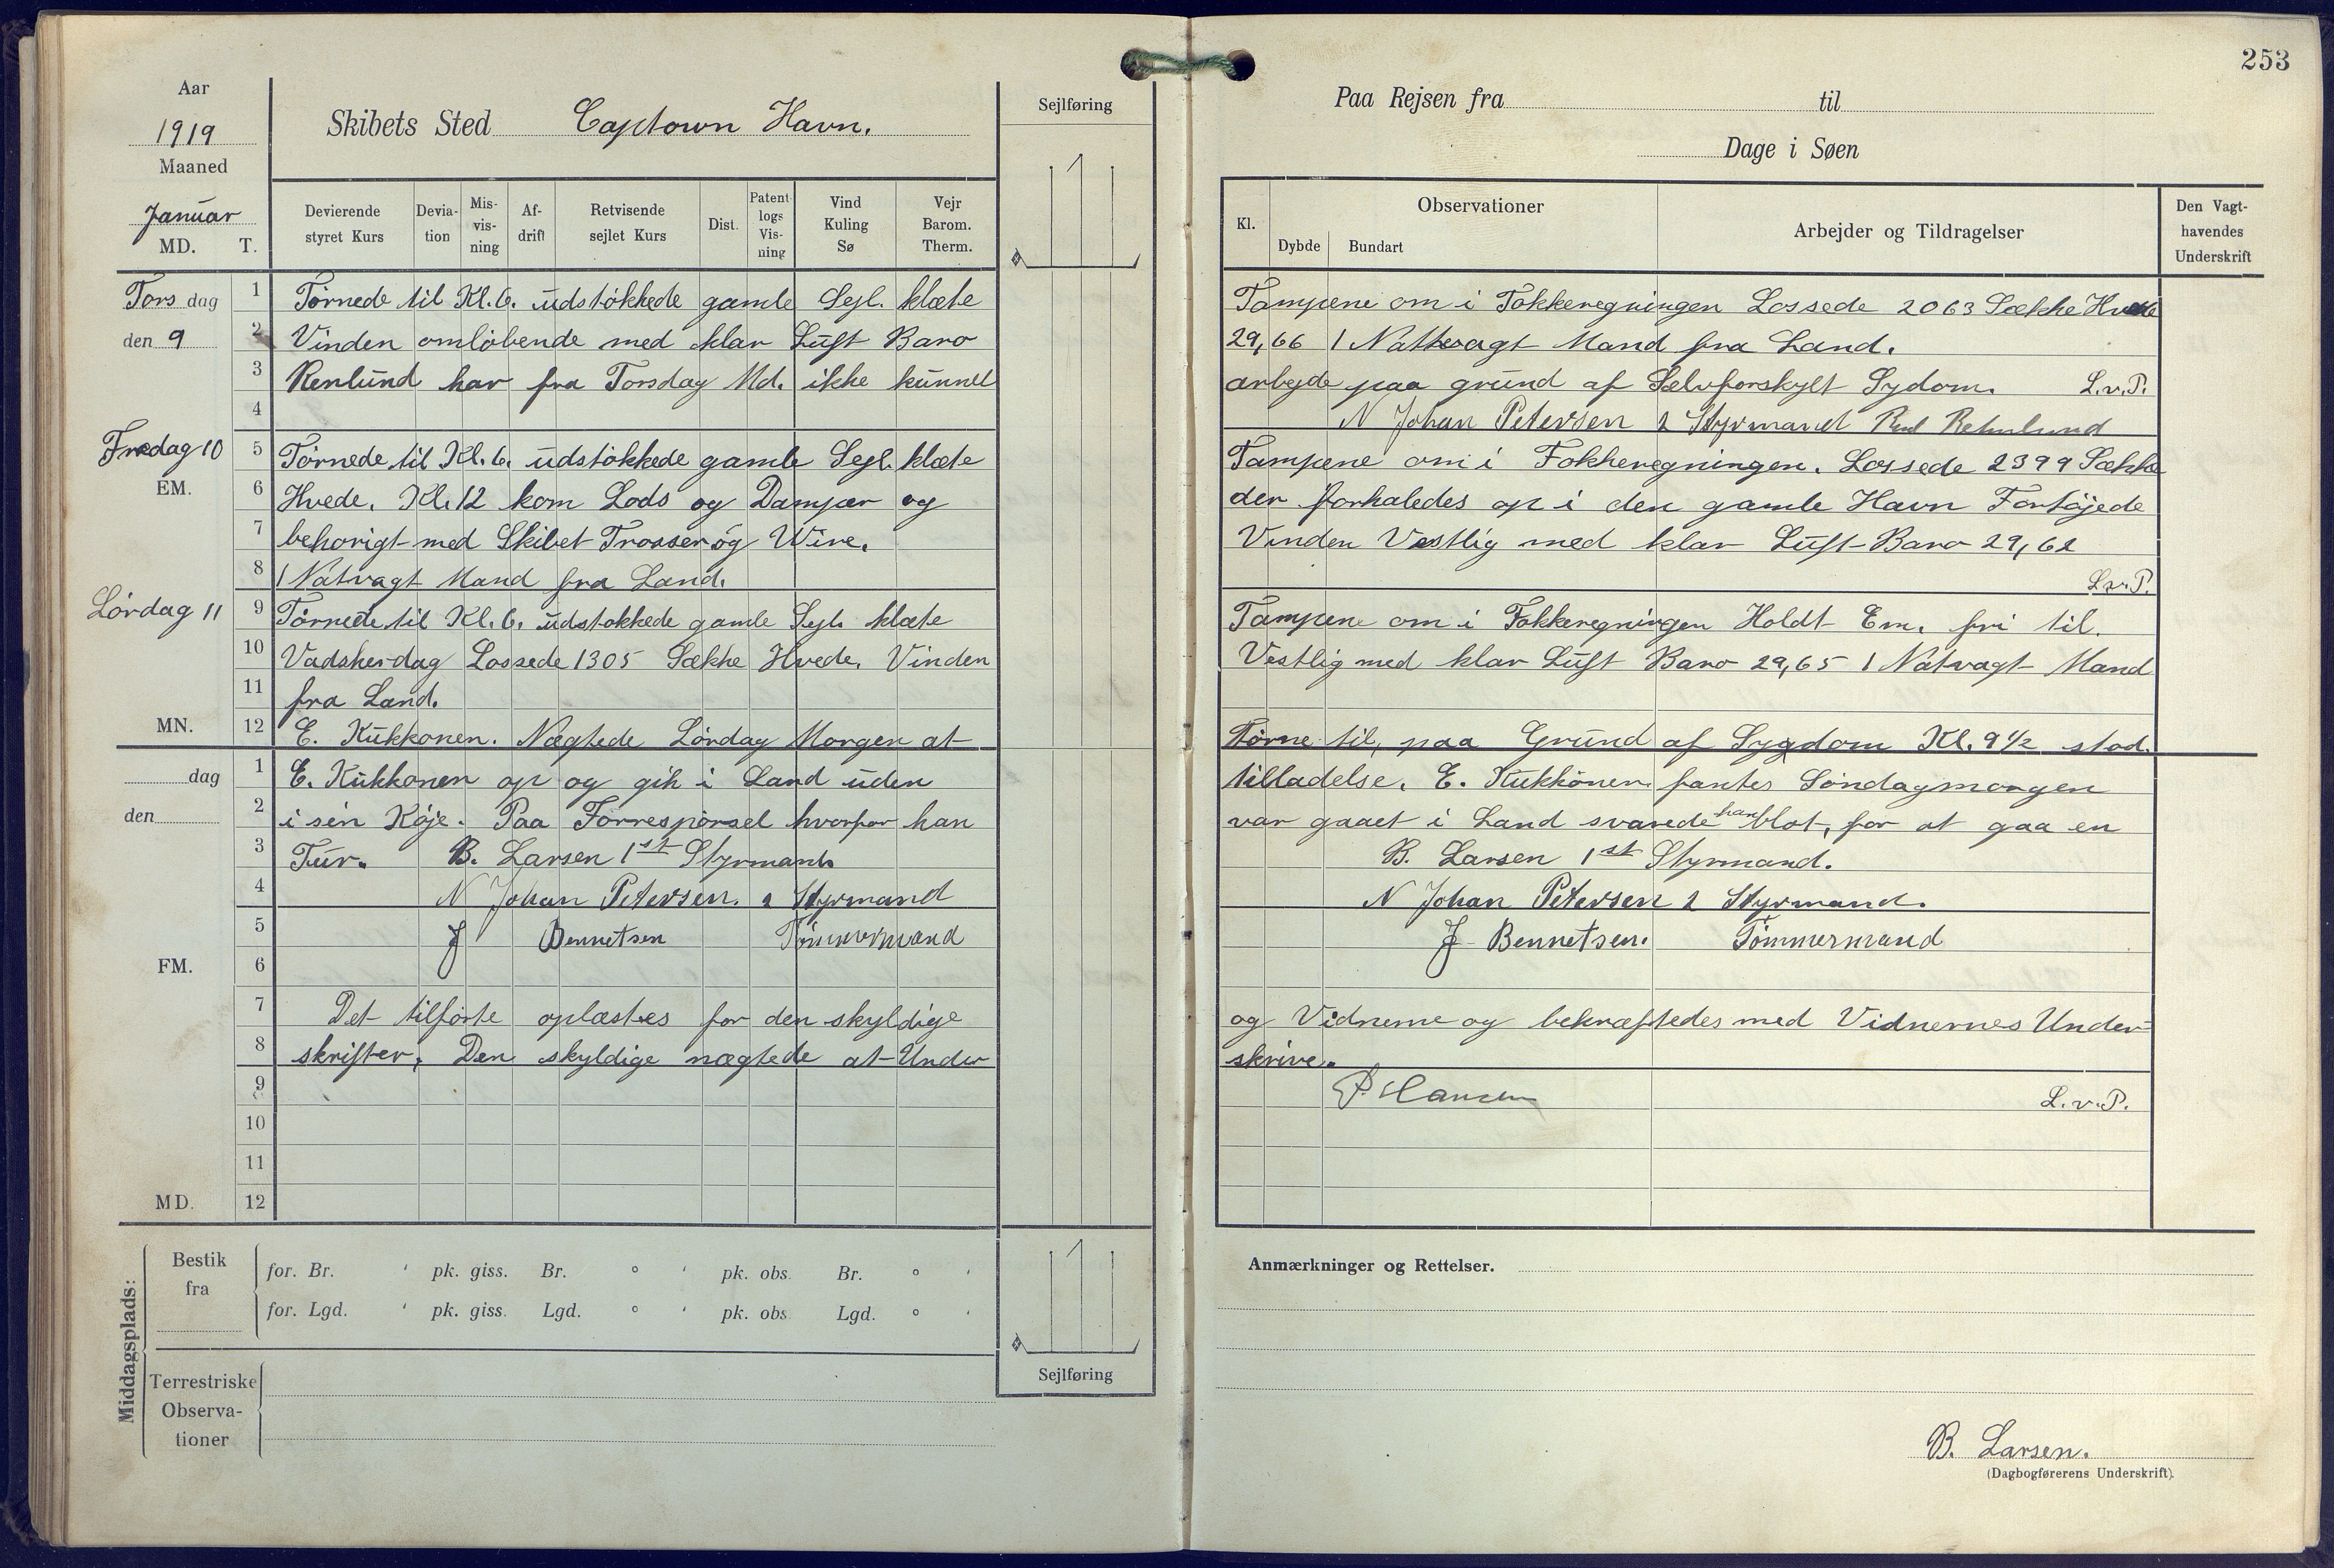 253
Aar
1919
Maaned
Januar
MD. T.
Skibets Sted Captown Havn.
Sejlføring
Paa Rejsen fra til
Dage i Søen
Devierende styret Kurs
Devia-tion
Mis-vis-ning
Af-drift
Retvisende sejlet Kurs
Dist.
Patent logs Vis-ning
Vind Kuling Sø
Vejr Barom. Therm.
Kl.
Observationer
Dybde Bundart
Arbejder og Tildragelser
Den Vagt-havendes Underskrift
Tors dag
den 9
1 Tørnede til Kl. 6. udstokkede gamle Sejl. klæte Tampene om i Fokkeregningen Lossede 2063 Sække Hvede
2 Vinden omløbende med klar Luft Baro 29,66 1 Nattevagt Mand fra Land.
3 Renlund har fra Torsdag Md. ikke kunnet arbejde paa grund af Selvforskylt Sydom. L.v.P.
4 N Johan Petersen 2 Styrmand
Fredag 10
EM.
5 Tørnede til Kl. 6. udstokkede gamle Sejl. klæte Tampene om i Fokkeregningen. Lossede 2399 Sække
6 Hvede. Kl. 12 kom Lods og Damper og der forhaledes op i den gamle Havn Fortøjede
7 behorigt med Skibet Trosser og Wire. Vinden Vestlig med klar Luft Baro 29,62
8 1 Natvagt Mand fra Land. L.v.P.
Lørdag 11
9 Tørnede til Kl. 6. udstokkede gamle Sejl. klæte Tampene om i Fokkeregningen Holdt Em. fri til.
10 Vadskerdag Lossede 1305 Sække Hvede. Vinden Vestlig med klar Luft Baro 29,65 1 Natvagt Mand
11 fra Land.
MN.
12 E. Kukkonen. Nægtede Lørdag Morgen at Tørne til, paa Grund af Sygdom Kl. 9½ stod.
dag
1 E. Kukkonen op og gik i Land uden tilladelse. E. Kukkonen fantes Søndagmorgen
den
2 i sin Køje. Paa Forrespørsel hvorfor han var gaaet i Land svarede han blot, for at gaa en
3 Tur. B. Larsen 1st Styrmand. B. Larsen 1st Styrmand.
4 N Johan Petersen. 2 Styrmand N Johan Petersen 2 Styrmand.
5 J Bennetsen Tömmermand J Bennetsen. Tömmermand
FM.
6
7 Det tilførte oplæstes for den skyldige og Vidnerne og bekræftedes med Vidnernes Under-
8 skrifter, Den skyldige nægtede at Under skrive.
9 P. Hansen L.v.P.
10
11
MD.
12
Middagsplads:
Bestik fra
for. Br. ' pk. giss. Br. ° ' pk. obs. Br. ° '
for. Lgd. ' pk. giss. Lgd. ° ' pk. obs. Lgd. ° '
Terrestriske Observa-tioner
Sejlføring
Anmærkninger og Rettelser.
B. Larsen.
(Dagbogførerens Underskrift).